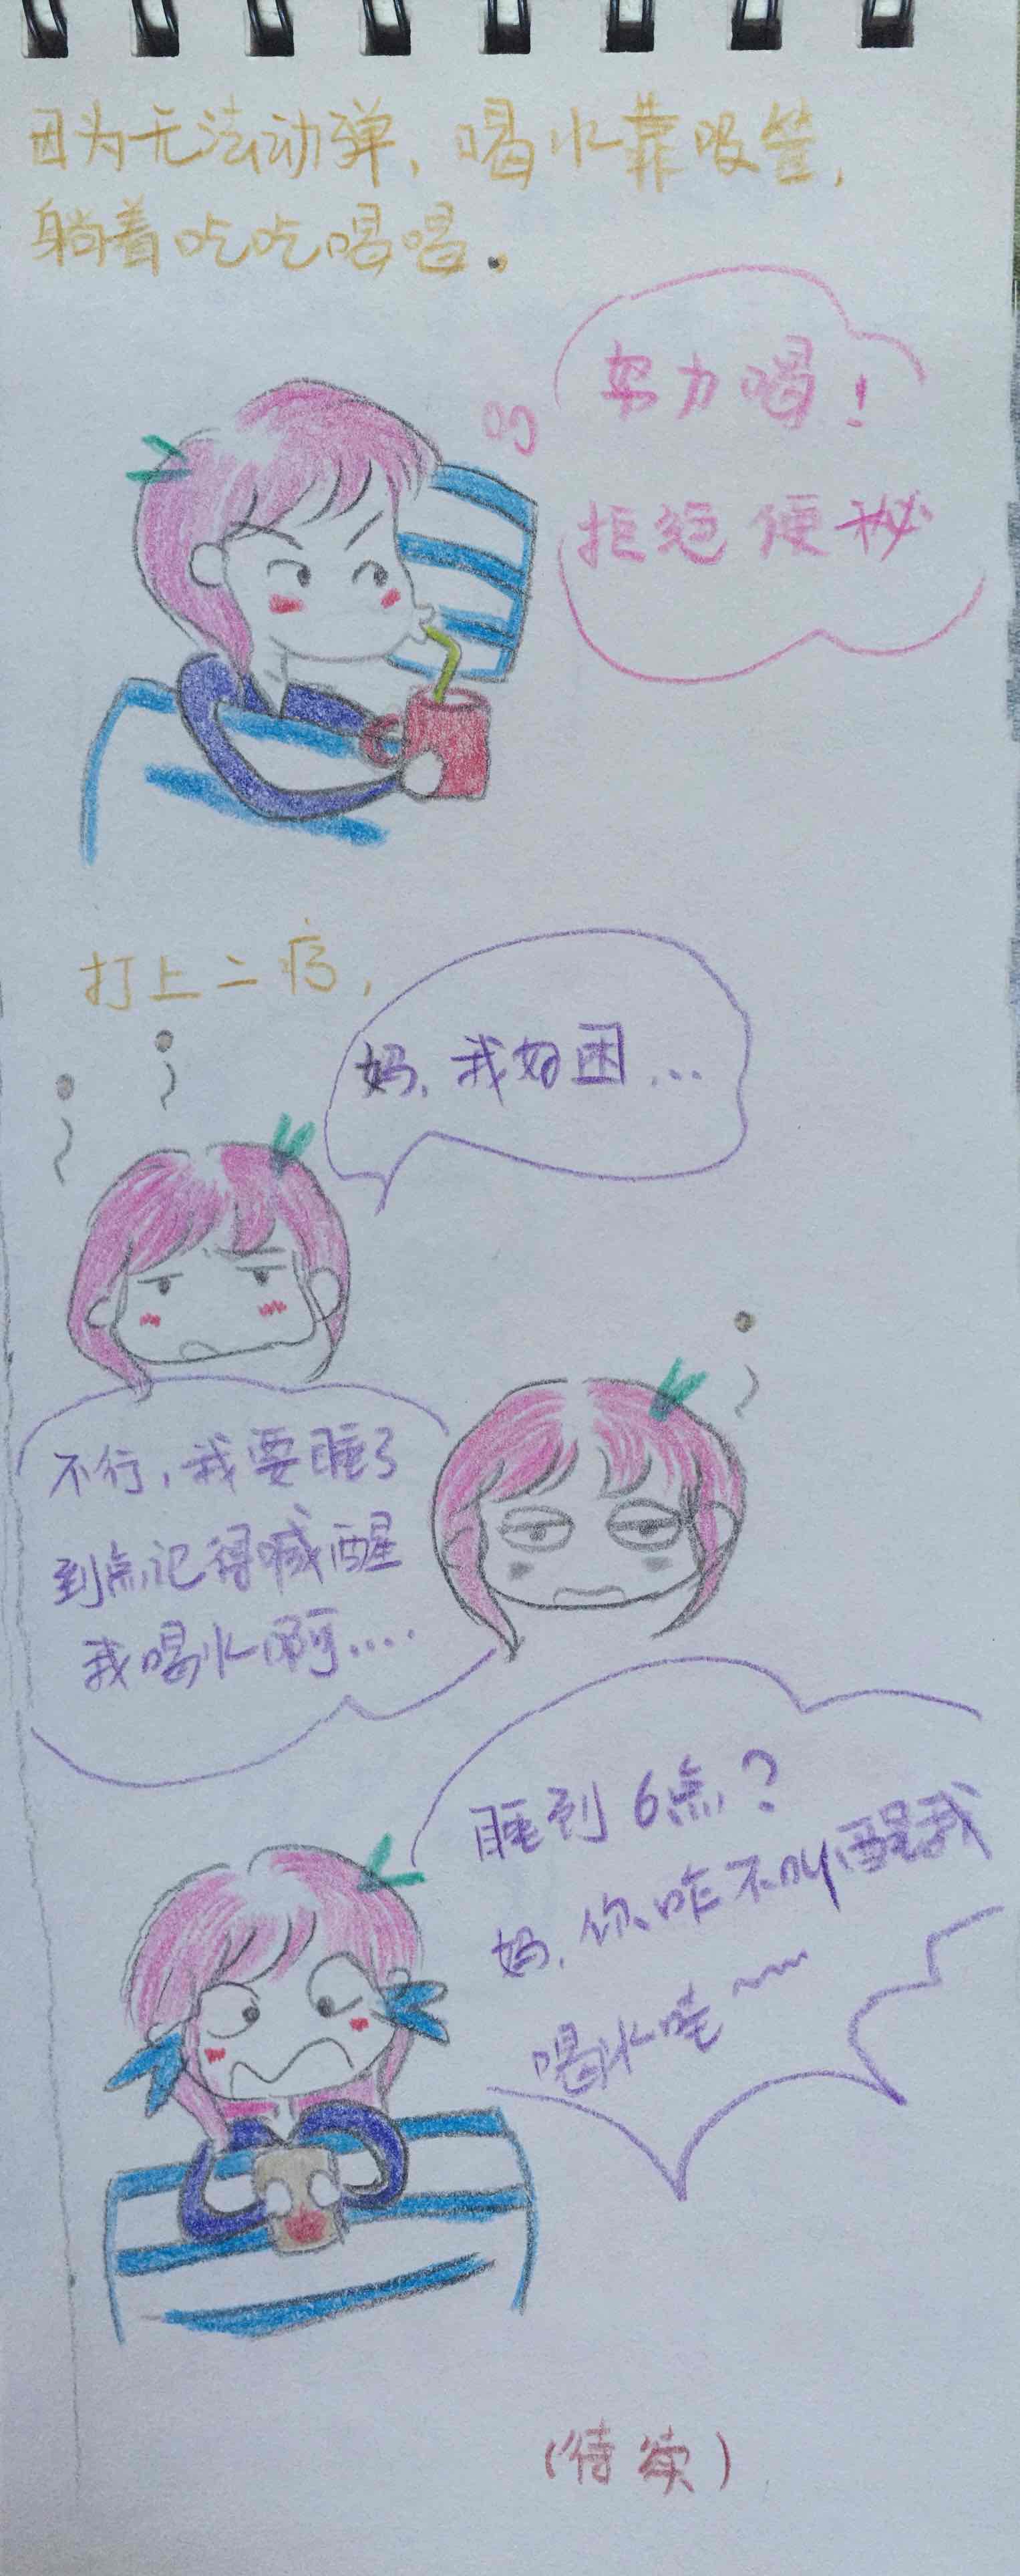 因为无法动弹，喝水靠吸管，
躺着吃吃喝喝．
努力喝！
拒绝便秘
打上二疗，
妈，我好困...
不行，我要睡了
到点记得喊醒
我喝水啊....
睡到6点？
妈，你咋不叫醒我
喝水哇~~
（待续）